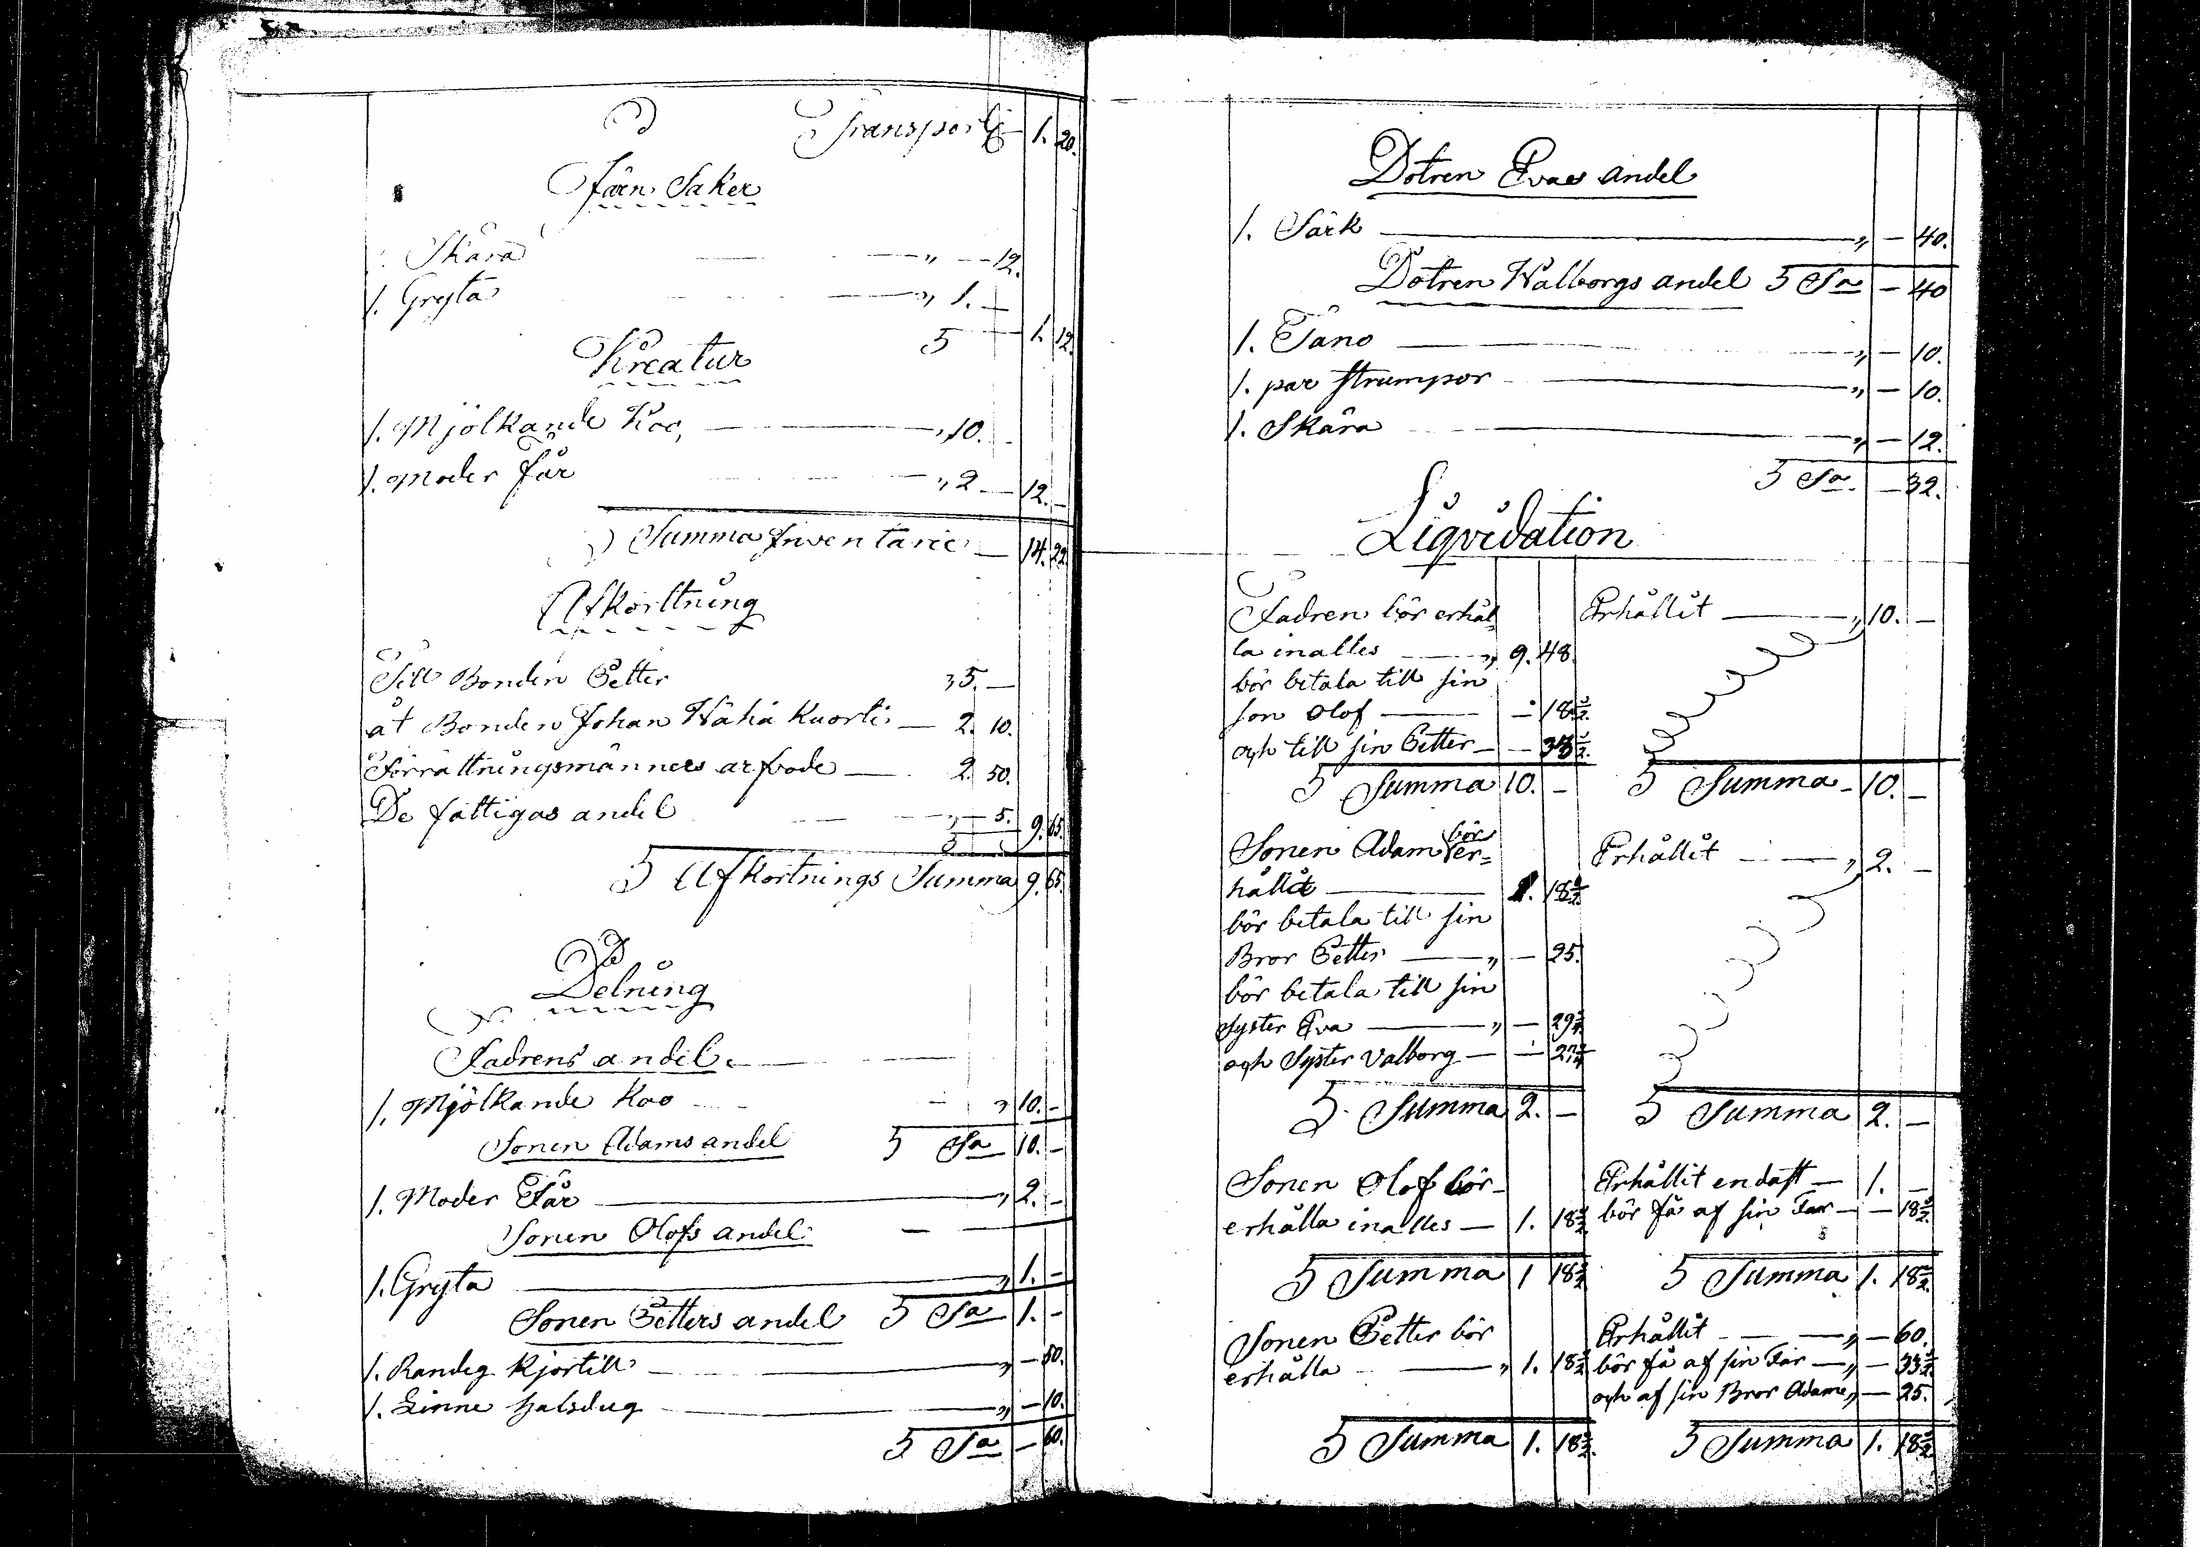 Transport 1. 20.
Järn Saker
Skära „ — 12.
1. Gryta „ 1. —
S 1. 12.
Kreatur
1. Mjölkande Koo, „ 10. —
1. Moder Får „ 2 — 12. —
Summa Inventarie — 14. 22.
Afkorttning
Till Bonden Petter 5. —
åt Bonden Johan — 2. 10.
Förrättningsmännes arfvode — 2. 50.
De fattigas andel „ — 5. 9. 65.
S Afkortnings Summa 9. 65.
Delning
Fadrens andel.
1. Mjölkande Koo „ 10. —
Sonen Adams andel S Sa 10. —
1. Moder Får „ 2. —
Sonen Olofs andel
1. Gryta „ 1. —
Sonen Petters andel S Sa 1. —
1. Randig Kjortill „ — 50.
1. Linne halsdug „ — 10.
S Sa — 60.
Dotren Evas andel
1. Särk „ — 40.
Dotren Walborgs andel S Sa — 40
1. Tano „ — 10.
1. par strumpor „ — 10.
1. Skära „ — 12.
S Sa — 32.
Liqvidation
Fadren bör erhål= Erhållit „ 10. —
la inalles „ 9. 48.
bör betala till sin
son Olof — 18½
och till sin Petter — 33½
S Summa 10. — S Summa 10. —
Sonen Adam bör er= Erhållit „ 2. —
hålla 1. 18½
bör betala till sin
Bror Petter „ — 25.
bör betala till sin
syster Eva „ —
och Syster Valborg —
S Summa 2. — S Summa 2. —
Sonen Olof bör Erhållit endast — 1. —
erhålla inalles — 1. 18½ bör få af sin Far — — 18½
S Summa 1 18½ S Summa 1. 18½
Sonen Petter bör Erhållit „ — 60.
erhålla „ 1. 18½ bör få af sin Far „ — 33½
och af sin Bror Adam „ — 25.
S Summa 1. 18½ S Summa 1. 18½